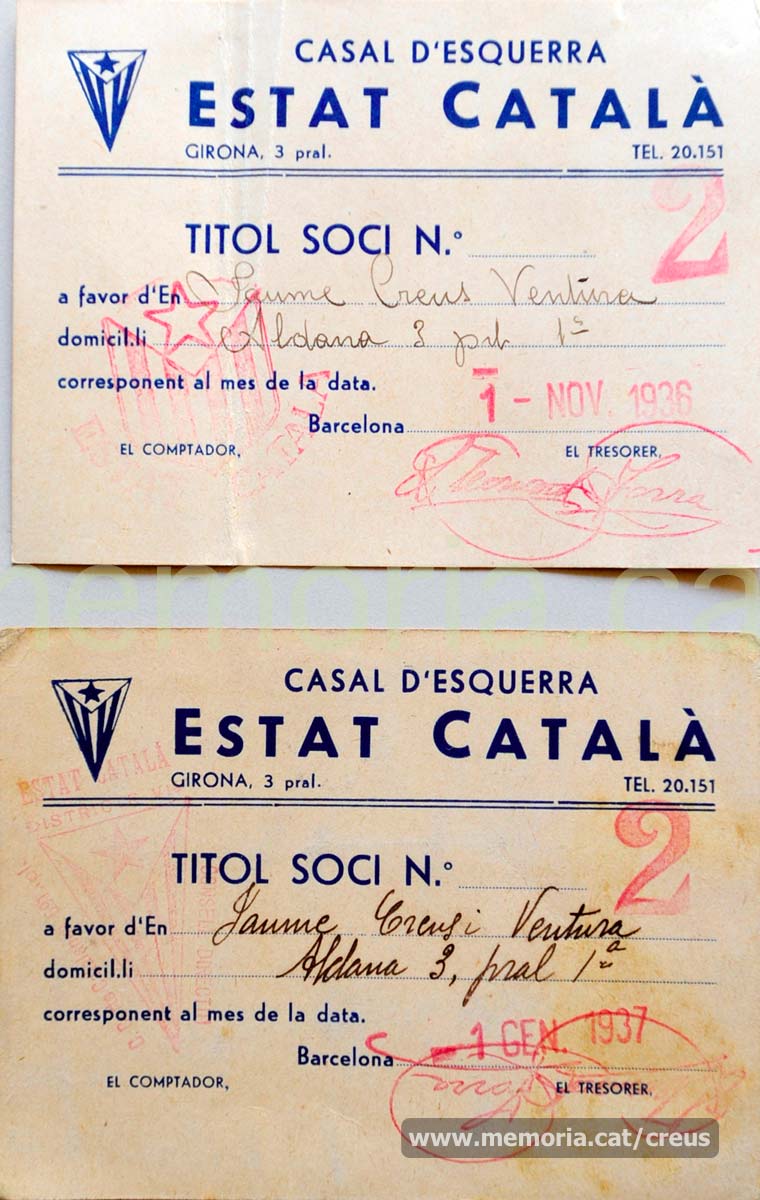 CASAL D'ESQUERRA
ESTAT CATALÀ
GIRONA, 3 pral. TEL. 20.151
2
TITOL SOCI N.º
a favor d'En Jaume Creus Ventura
domicil.li Aldana 3 prl 1ª
corresponent al mes de la data.
Barcelona 1 - NOV. 1936
EL COMPTADOR, EL TRESORER,
CATALÀ
memoria.ca
CASAL D'ESQUERRA
ESTAT CATALÀ
GIRONA, 3 pral. TEL. 20.151
ESTAT CATALÀ
DISTRICTE
2
TITOL SOCI N.º
a favor d'En Jaume Creus i Ventura
domicil.li Aldana 3, pral 1ª
CONSELL DIRECTIU
corresponent al mes de la data.
Barcelona - 1 GEN. 1937
EL COMPTADOR, EL TRESORER,
www.memoria.cat/creus